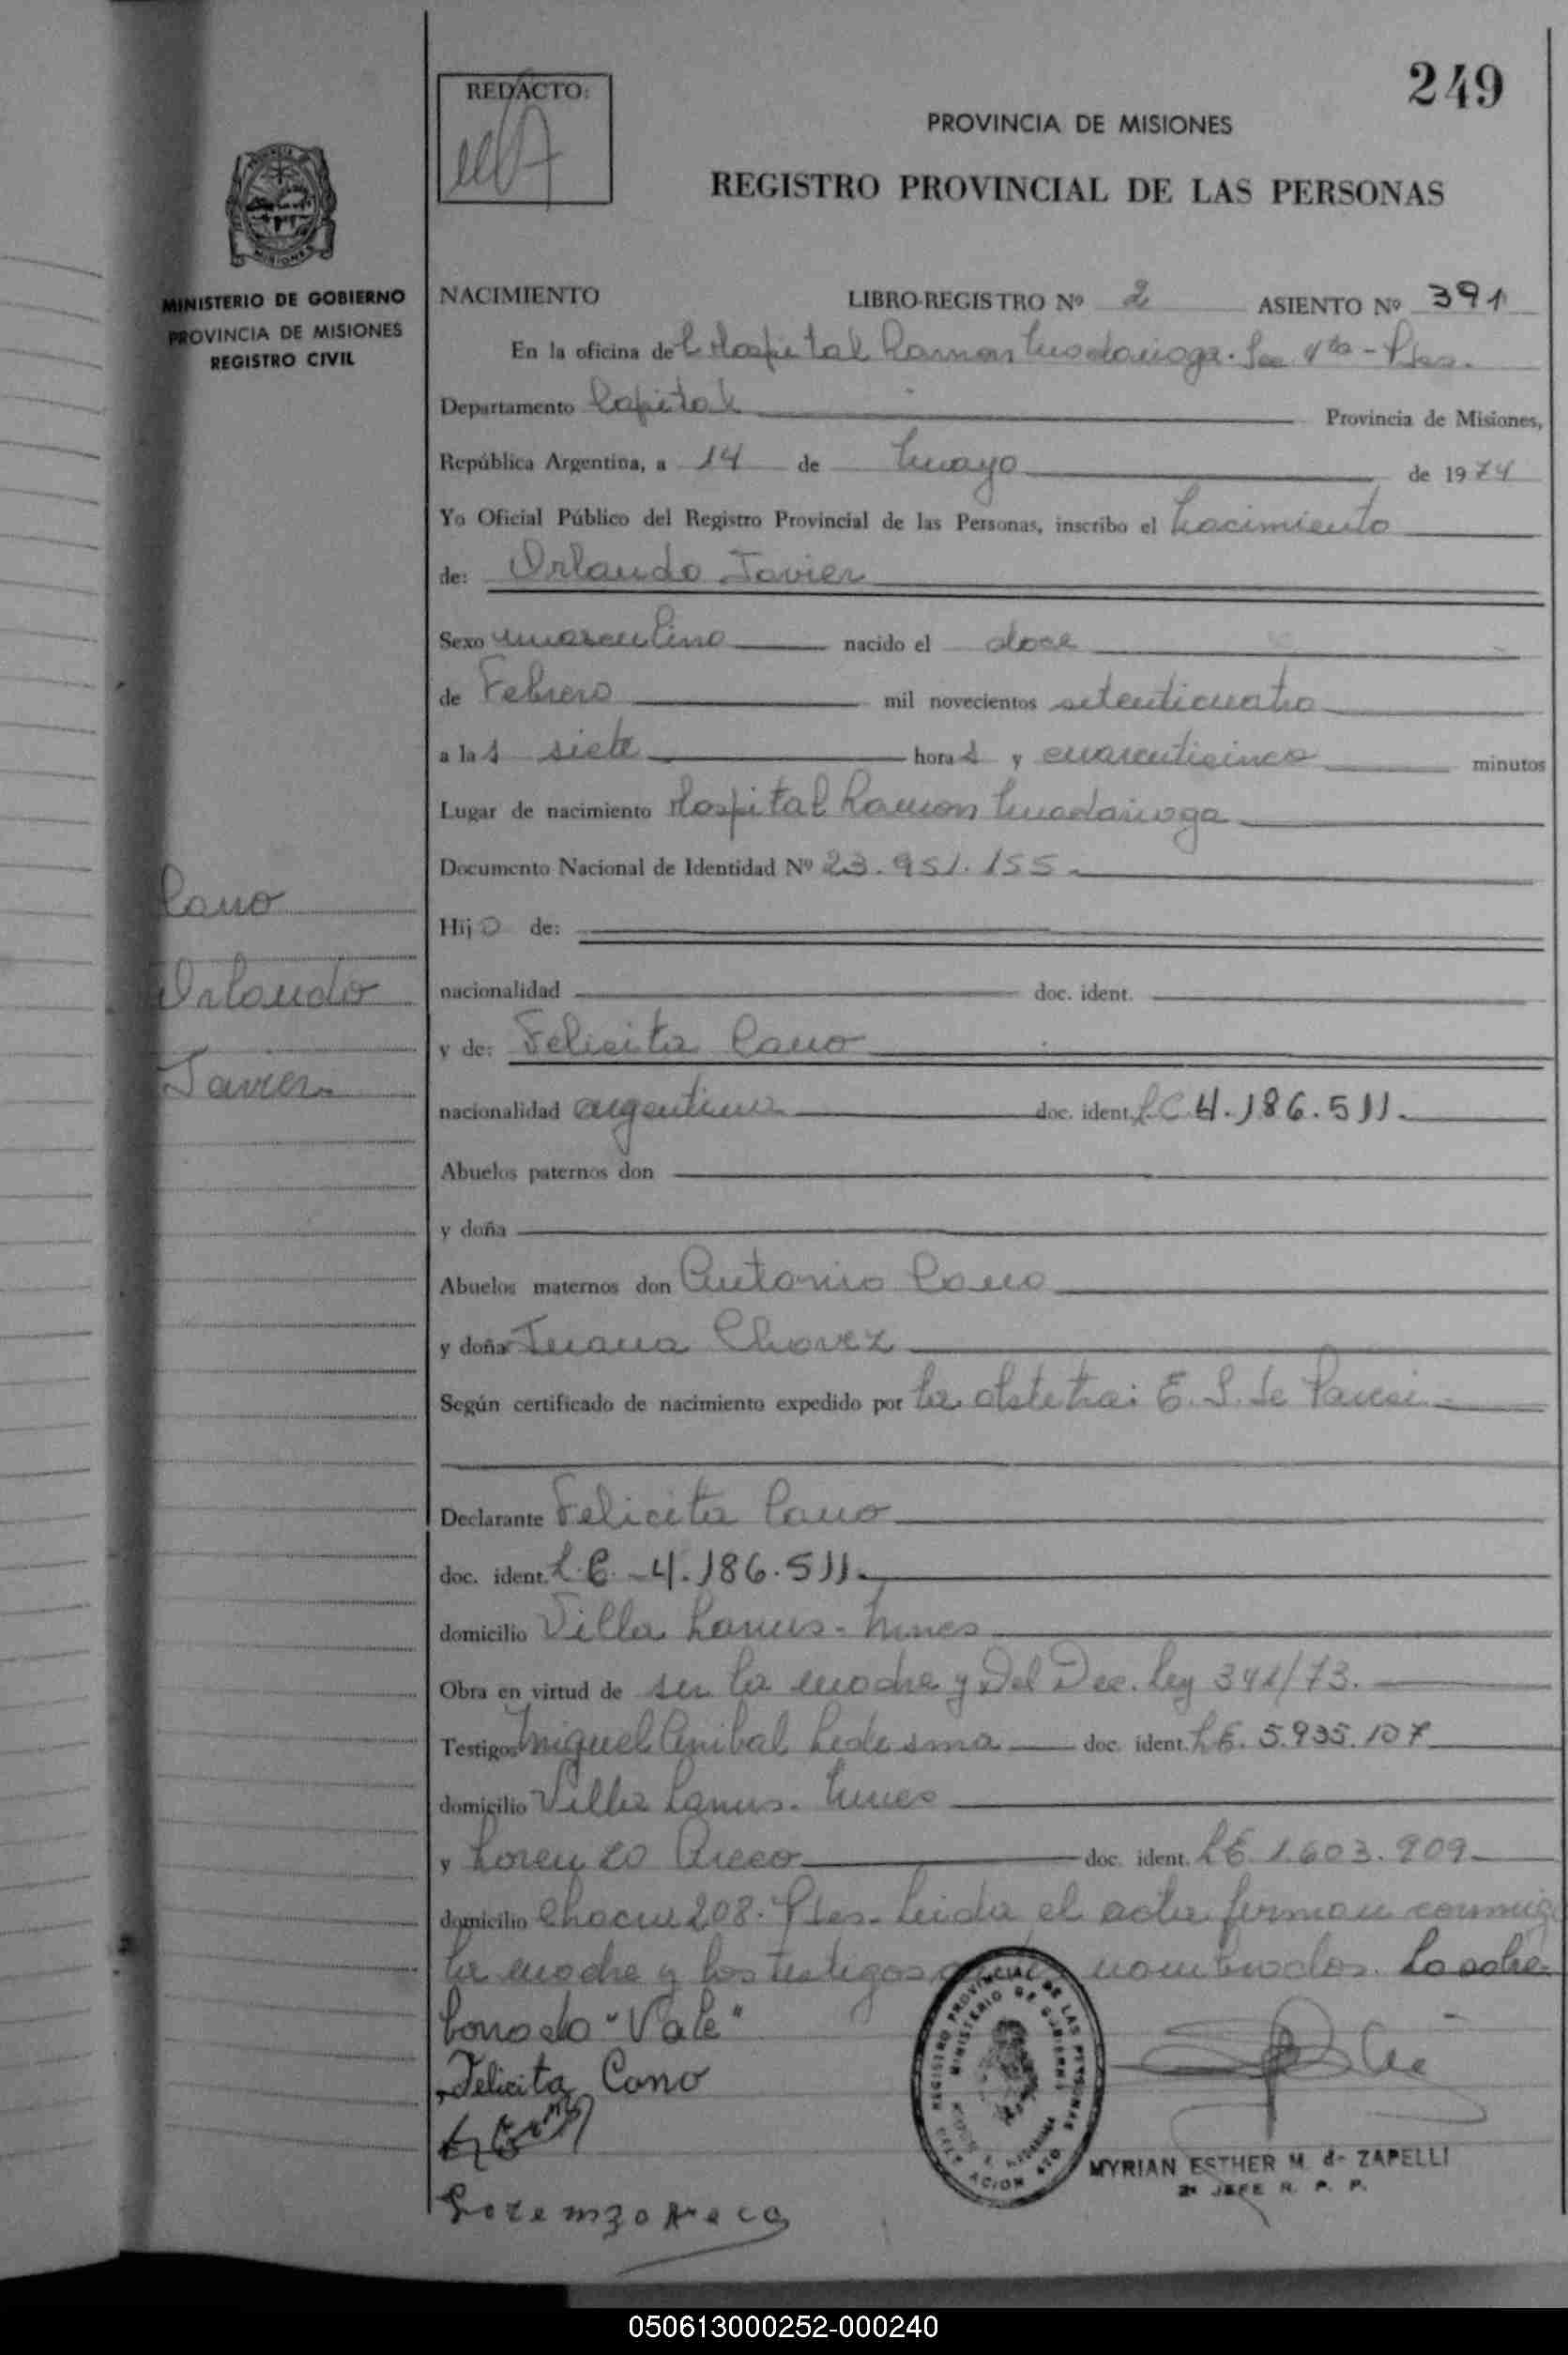 249
REDACTO:
PROVINCIA DE MISIONES
REGISTRO PROVINCIAL DE LAS PERSONAS
MINISTERIO DE GOBIERNO
PROVINCIA DE MISIONES
REGISTRO CIVIL
NACIMIENTO LIBRO-REGISTRO Nº 2 ASIENTO Nº 391
En la oficina del Hospital Ramon Madariaga. Sec 4ta - Pdas.
Departamento Capital Provincia de Misiones,
República Argentina, a 14 de Mayo de 1974
Yo Oficial Público del Registro Provincial de las Personas, inscribo el Nacimiento
de: Orlando Javier
Sexo masculino nacido el doce
de Febrero mil novecientos setenticuatro
a las siete horas y cuarenticinco minutos
Lugar de nacimiento Hospital Ramon Madariaga
Documento Nacional de Identidad Nº 23.951.155
Cano
Orlando
Javier
Hijo de:
nacionalidad doc. ident.
y de: Felicita Cano
nacionalidad argentina doc. ident. LC 4.186.511.
Abuelos paternos don
y doña
Abuelos maternos don Antonio Cano
y doña Juana Chavez
Según certificado de nacimiento expedido por la obstetra: E. S. de
Declarante Felicita Cano
doc. ident. L.C. 4.186.511.
domicilio Villa Lanus - Mnes
Obra en virtud de ser la madre y Del Dec. Ley 341/73.
Testigos Miguel Anibal Ledesma doc. ident. LE. 5.935.107
domicilio Villa Lanus. Mnes
y Lorenzo Areco doc. ident. LE 1.603.909
domicilio Chacra 208. Pdas. Leida el acta firman conmigo
la madre y los testigos nombrados. Lo sobre
borrado "Vale"
Felicita Cano
Lorenzo Areco
REGISTRO PROVINCIAL DE LAS PERSONAS
MINISTERIO DE GOBIERNO
MYRIAN ESTHER M. de ZAPELLI
2º JEFE R. P. P.
050613000252-000240